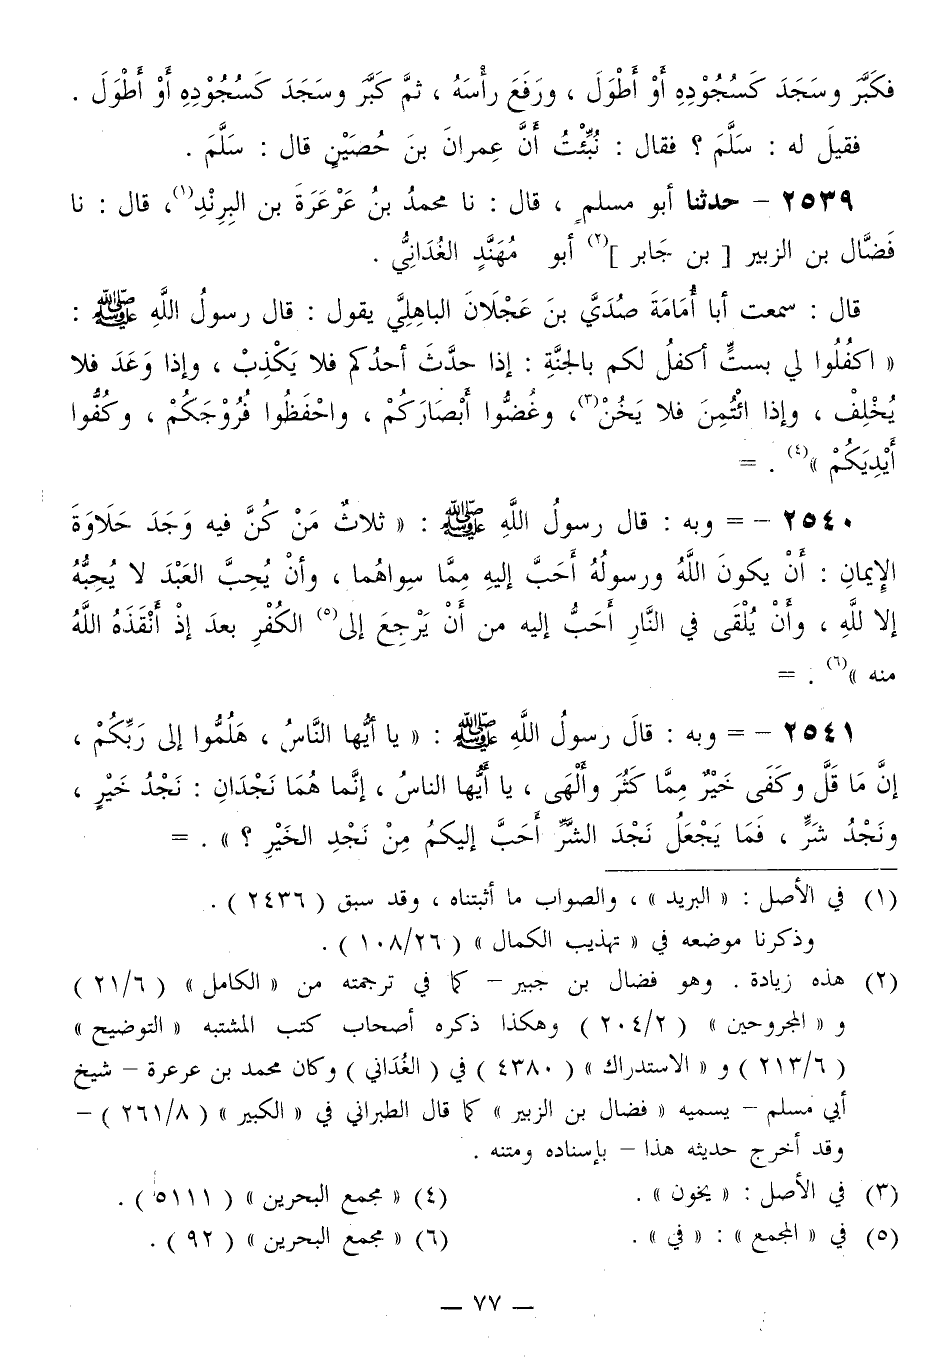 فكَبَّر وسَجَدَ كَسُجُوْدِهِ أَوْ أَطْوَلَ ، ورَفَعَ رأْسَهُ ، ثمَّ كَبَّرَ وسَجَدَ كَسُجُوْدِهِ أَوْ أَطْوَلَ .
فقيلَ له : سَلَّمَ ؟ فقال : نُبِّئْتُ أَنَّ عِمرانَ بنَ حُصَيْنٍ قال : سَلَّمَ .
٢٥٣٩ – حدثنا أبو مسلمٍ ، قال : نا محمدُ بنُ عَرْعَرَةَ بن البِرِنْدِ(١)، قال : نا
فَضَّال بن الزبير [ بن جَابر ](٢) أبو مُهَنَّدٍ الغُدَانِيُّ .
قال : سمعت أبا أُمَامَةَ صُدَيَّ بنَ عَجْلَانَ الباهِلِيَّ يقول : قال رسولُ اللَّهِ ﷺ :
« اكفُلُوا لي بستٍّ أكفلُ لكم بالجنَّةِ : إذا حدَّثَ أحدُكم فلا يَكْذِبْ ، وإذا وَعَدَ فلا
يُخْلِفْ ، وإذا ائْتُمِنَ فلا يَخُنْ(٣)، وغُضُّوا أَبْصَارَكُمْ ، واحْفَظُوا فُرُوْجَكُمْ ، وكُفُّوا
أَيْدِيَكُمْ »(٤) . =
٢٥٤٠ – = وبه : قال رسولُ اللَّهِ ﷺ : « ثلاثٌ مَنْ كُنَّ فيه وَجَدَ حَلَاوَةَ
الإِيمَانِ : أَنْ يكونَ اللَّهُ ورسولُهُ أَحَبَّ إليهِ مِمَّا سِواهُما ، وأنْ يُحِبَّ العَبْدَ لا يُحِبُّهُ
إلا للَّهِ ، وأَنْ يُلْقَى في النَّارِ أَحَبُّ إليه من أَنْ يَرْجِعَ إلى(٥) الكُفْرِ بعدَ إذْ أَنْقَذَهُ اللَّهُ
منه »(٦) . =
٢٥٤١ – = وبه : قالَ رسولُ اللَّهِ ﷺ : « يا أيُّها النَّاسُ ، هَلُمُّوا إلى رَبِّكُمْ ،
إنَّ مَا قَلَّ وكَفَى خَيْرٌ مِمَّا كَثُرَ وأَلْهَى ، يا أَيُّها الناسُ ، إنَّما هُمَا نَجْدَان : نَجْدُ خَيْرٍ ،
ونَجْدُ شَرٍّ ، فَمَا يَجْعَلُ نَجْدَ الشَّرِّ أَحَبَّ إليكمُ مِنْ نَجْدِ الخَيْرِ ؟ » . =
(١) في الأصل : « البريد » ، والصواب ما أثبتناه ، وقد سبق ( ٢٤٣٦ ) .
وذكرنا موضعه في « تهذيب الكمال » ( ١٠٨/٢٦ ) .
(٢) هذه زيادة . وهو فضال بن جبير – كما في ترجمته من « الكامل » ( ٢١/٦ )
و « المجروحين » ( ٢٠٤/٢ ) وهكذا ذكره أصحاب كتب المشتبه « التوضيح »
( ٢١٣/٦ ) و « الاستدراك » ( ٤٣٨٠ ) في ( الغُدَاني ) وكان محمد بن عرعرة – شيخ
أبي مسلم – يسميه « فضال بن الزبير » كما قال الطبراني في « الكبير » ( ٢٦١/٨ ) –
وقد أخرج حديثه هذا – بإسناده ومتنه .
(٣) في الأصل : « يخون » .   (٤) « مجمع البحرين » ( ٥١١١ ) .
(٥) في « المجمع » : « في » .   (٦) « مجمع البحرين » ( ٩٢ ) .
— ٧٧ —